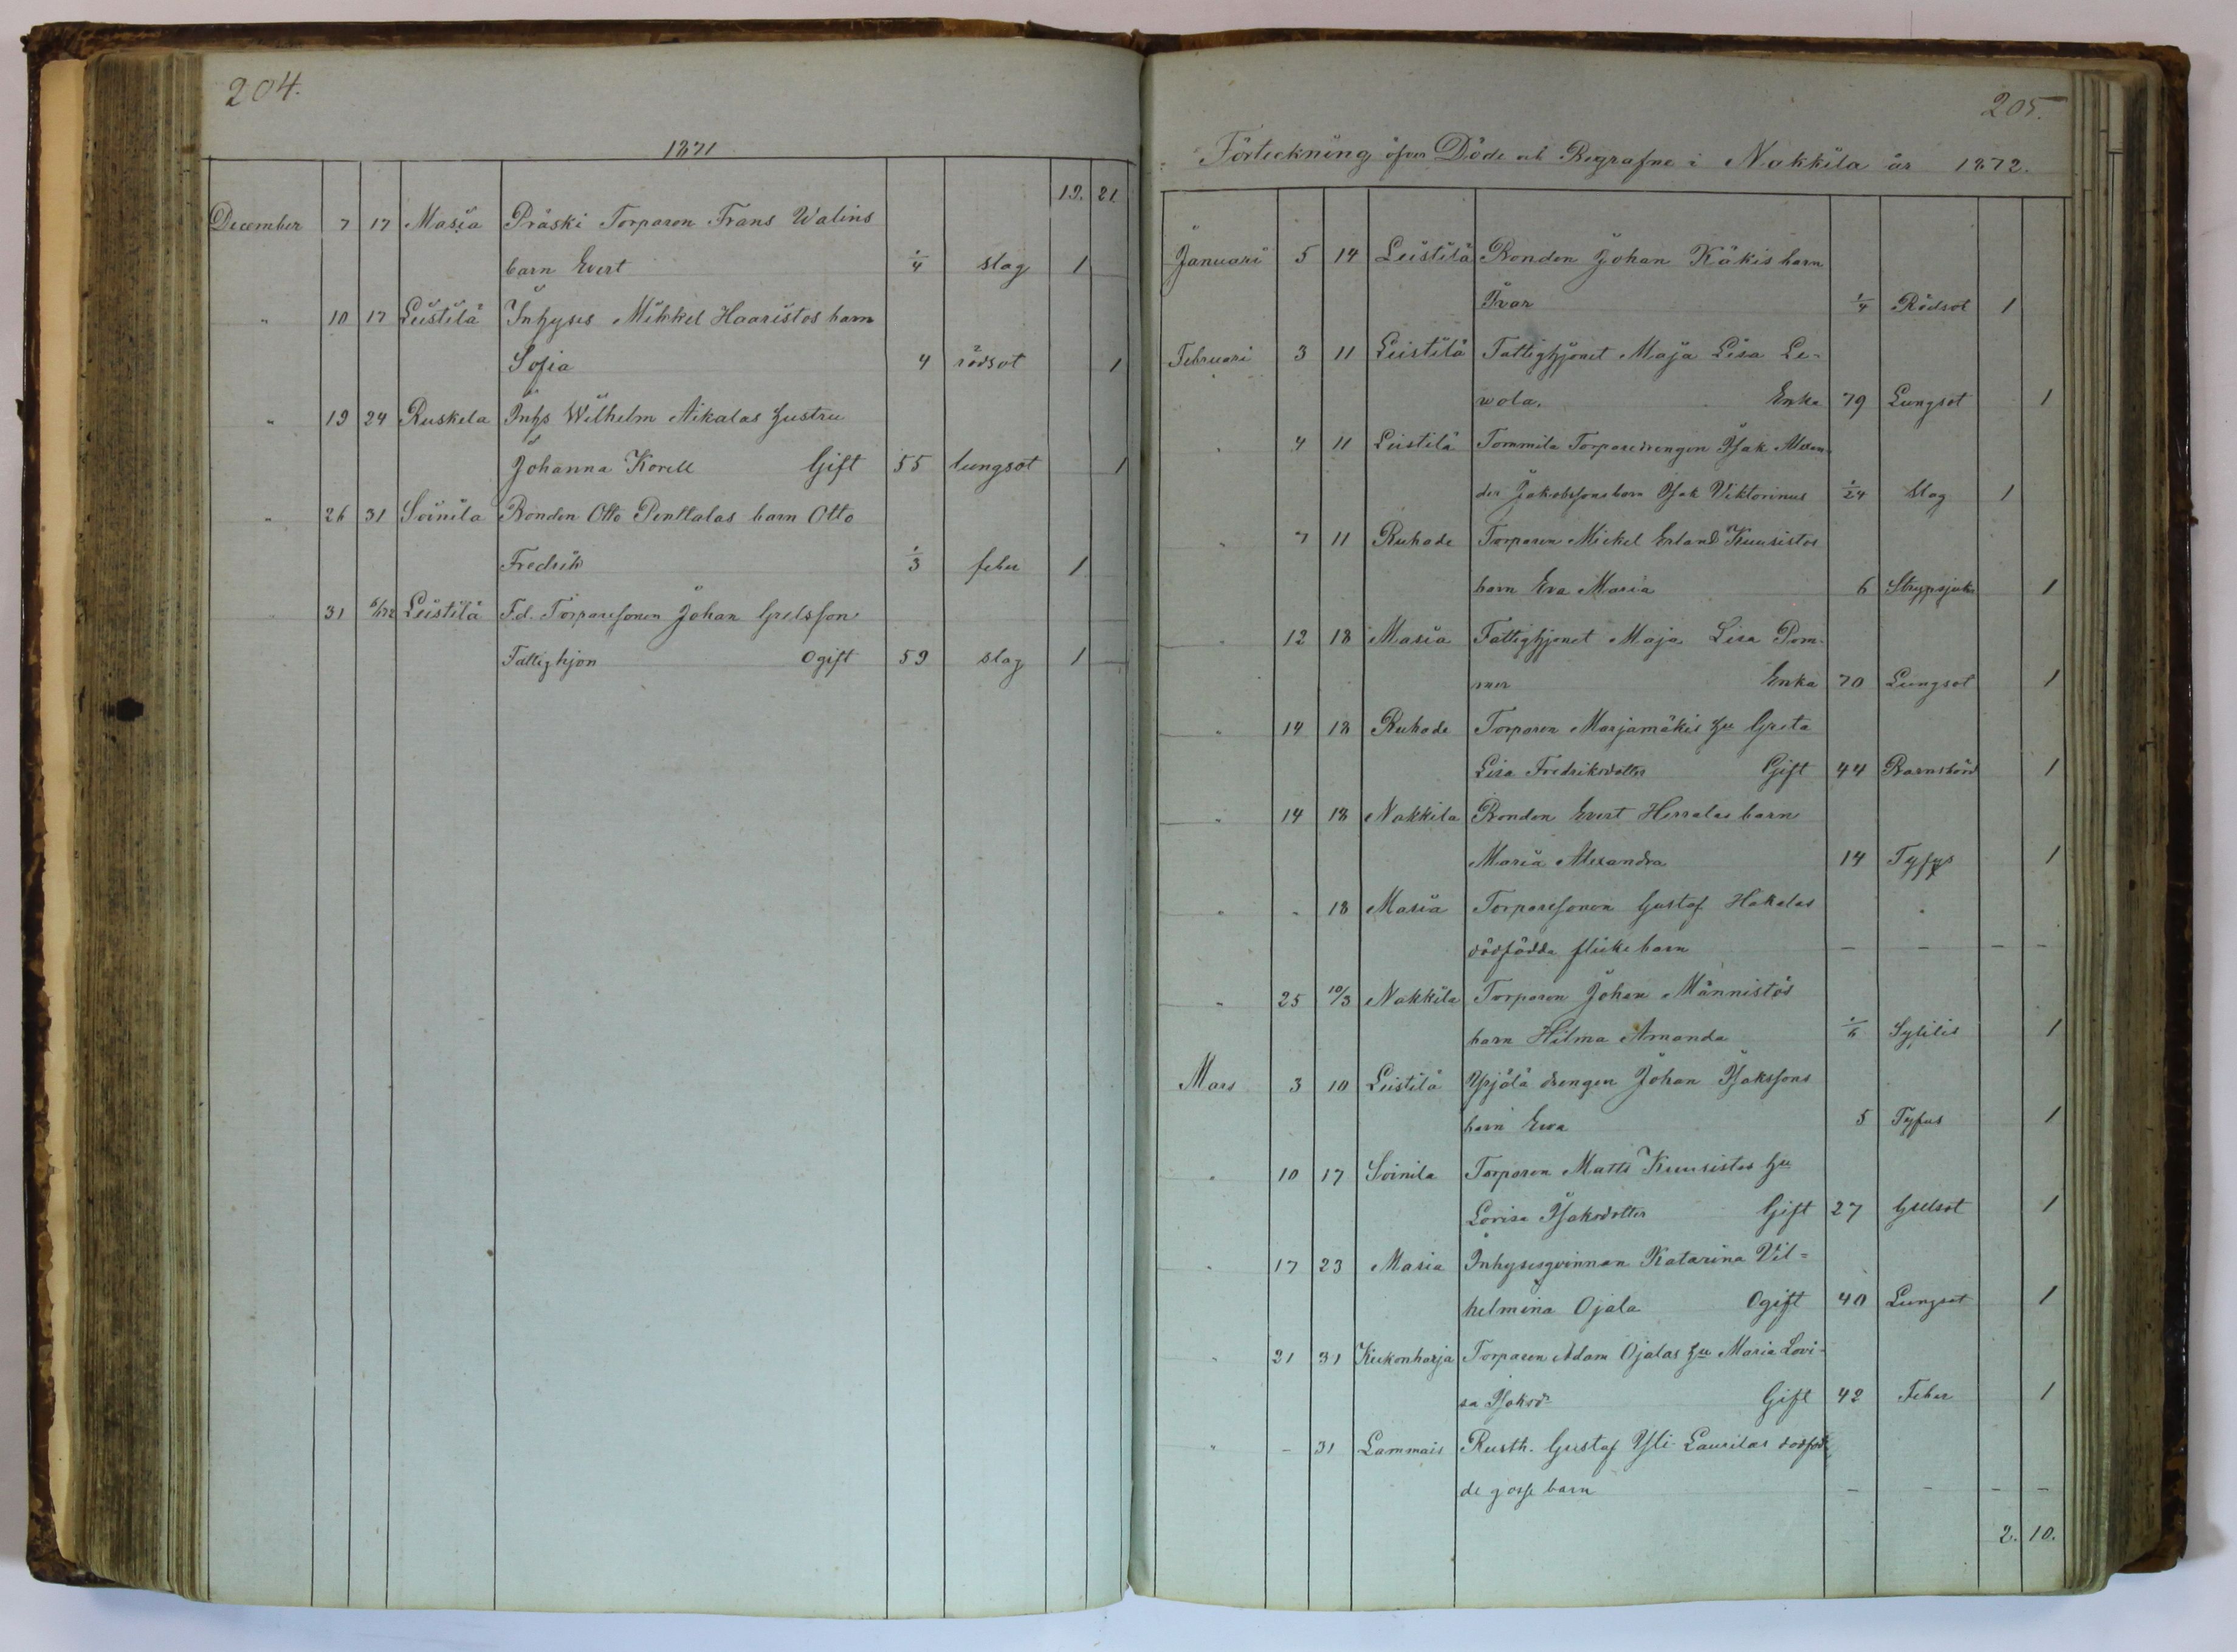 204.
1871
19. 21
December 7 17 Masia Präski Torparen Frans Walins
barn Evert 1/4 slag 1
" 10 17 Leistilä Inhyses Mikkel Haaristos barn
Sofia 4 rödsot 1
" 19 24 Ruskela Inhs Wilhelm Aikalas hustru
Johanna Korell Gift 55 lungsot 1
" 26 31 Soinila Bonden Otto Penttalas barn Otto
Fredrik 1/3 feber 1
" 31 Leistilä F.d. Torparesonen Johan Grelsson
Fattighjon Ogift 59 slag 1
205.
Förteckning öfver Döde och Begrafne i Nakkila år 1872.
Januari 5 14 Leistilä Bonden Johan Käkis barn
Ivar 1/4 Rödsot 1
Februari 3 11 Leistilä Fattighjonet Maja Lisa Le-
wola. Enka 79 Lungsot 1
" 4 11 Leistilä Tommila Torparedrengen Isak Alexan-
der Jakobssons barn Isak Viktorinus 1/24 Slag 1
" 7 11 Ruhade Torparen Mickel Erland Kuusistos
barn Eva Maria 6 Strypsjuka 1
" 12 18 Masia Fattighjonet Maja Lisa Pom-
mer Enka 70 Lungsot 1
" 14 18 Ruhade Torparen Marjamäkis hu Greta
Lisa Fredriksdotter Gift 44 Barnsbörd 1
" 14 18 Nakkila Bonden Evert Herralas barn
Maria Alexandra 14 Tyfus 1
" " 18 Masia Torparesonen Gustaf Hakalas
dödfödda flicke barn - - - -
" 25 10/3 Nakkila Torparen Johan Männistös
barn Hilma Amanda 1/6 Syfilis 1
Mars 3 10 Leistilä Ypjälä drengen Johan Isakssons
barn Ewa 5 Tyfus 1
" 10 17 Soinila Torparen Matts Kuusistos hu
Lovisa Isaksdotter Gift 27 Gulsot 1
" 17 23 Masia Inhysesqvinnan Katarina Vil=
helmina Ojala Ogift 40 Lungsot 1
" 21 31 Kukonharja Torparen Adam Ojalas hu Maria Lovi-
sa Isaksd. Gift 42 Feber 1
" - 31 Lammais Rusth. Gustaf Yli Laurilas dödföd
de gosse barn - - - -
2. 10.